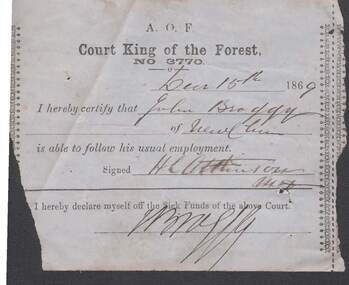 A. O. F
Court King of the Forest,
NO 3770.
Dec 15th 1869
I hereby certify that John Broggy
of
is able to follow his usual employment.
Signed
I hereby declare myself off the Sick Funds of the above Court.
Broggy